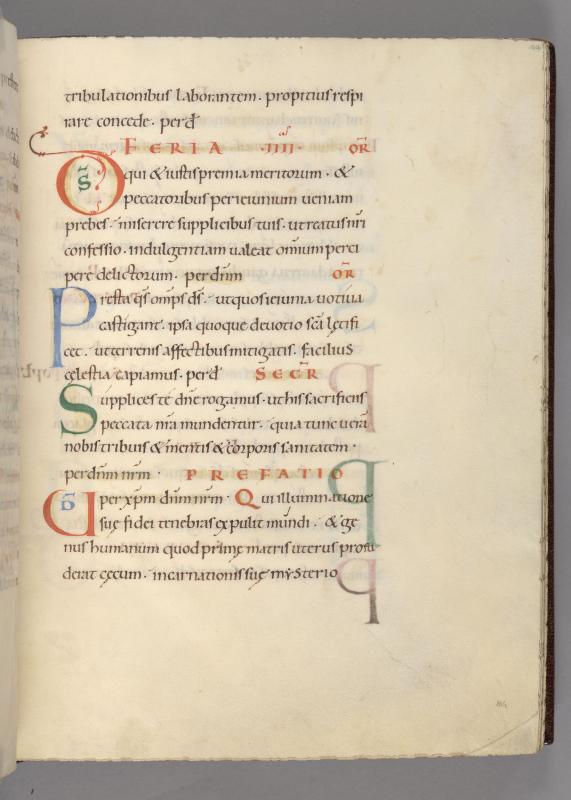 tribulationibus laborantem. propitius respi
rare concede. perd̄
FERIA ·IIII· OR̄
D̄S qui & iustis premia meritorum. &
peccatoribus per ieiunium ueniam
prebes. miserere supplicibus tuis. ut reatus n̄ri
confessio. indulgentiam ualeat omnium perci
pere delictorum. per dn̄m OR̄
Presta qs̄ omp̄s ds̄. ut quos ieiunia uotiua
castigant. ipsa quoque deuotio sc̄a lętifi
cet. ut terrenis affectibus mitigatis. facilius
cęlestia capiamus. perd̄ SECR̄
Supplices te dn̄e rogamus. ut his sacrificiis
peccata n̄ra mundentur. quia tunc uerā
nobis tribuis & mentis & corporis sanitatem.
per dn̄m nr̄m. PREFATIO
UD per xp̄m dn̄m nr̄m. Qui illuminatione
suę fidei tenebras expulit mundi. & ge
nus humanum quod primę matris uterus profu
derat cęcum. incarnationis suę mysterio